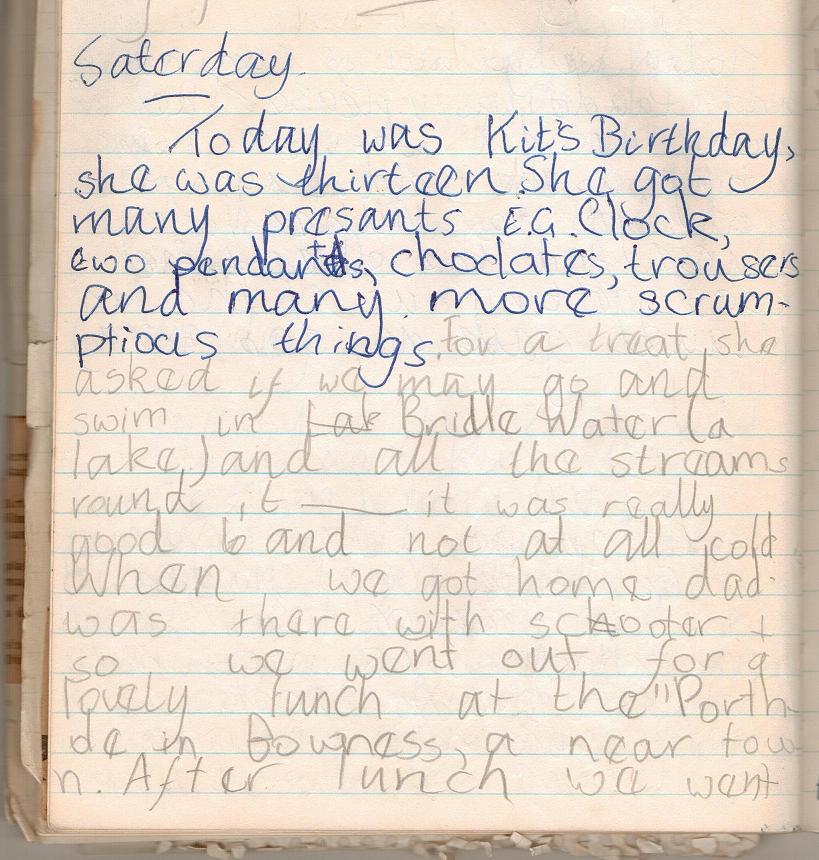 Saterday.
Today was Kit's Birthday,
she was thirteen. She got
many presants E.G. Clock,
two pendants, choclates, trousers
and many more scrum-
ptious things. For a treat she
asked if we may go and
swim in Lak Bridle Water (a
lake,) and all the streams
round it —— it was really
good b and not at all cold
When we got home dad
was there with schooter +
so we went out for a
lovely lunch at the "Porth-
de in Bowness, a near tow
n. After lunch we went